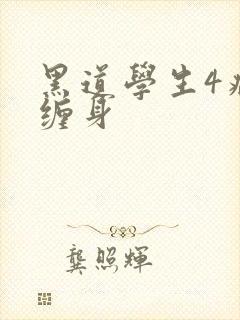 黑道學生4
缠身
龔照輝